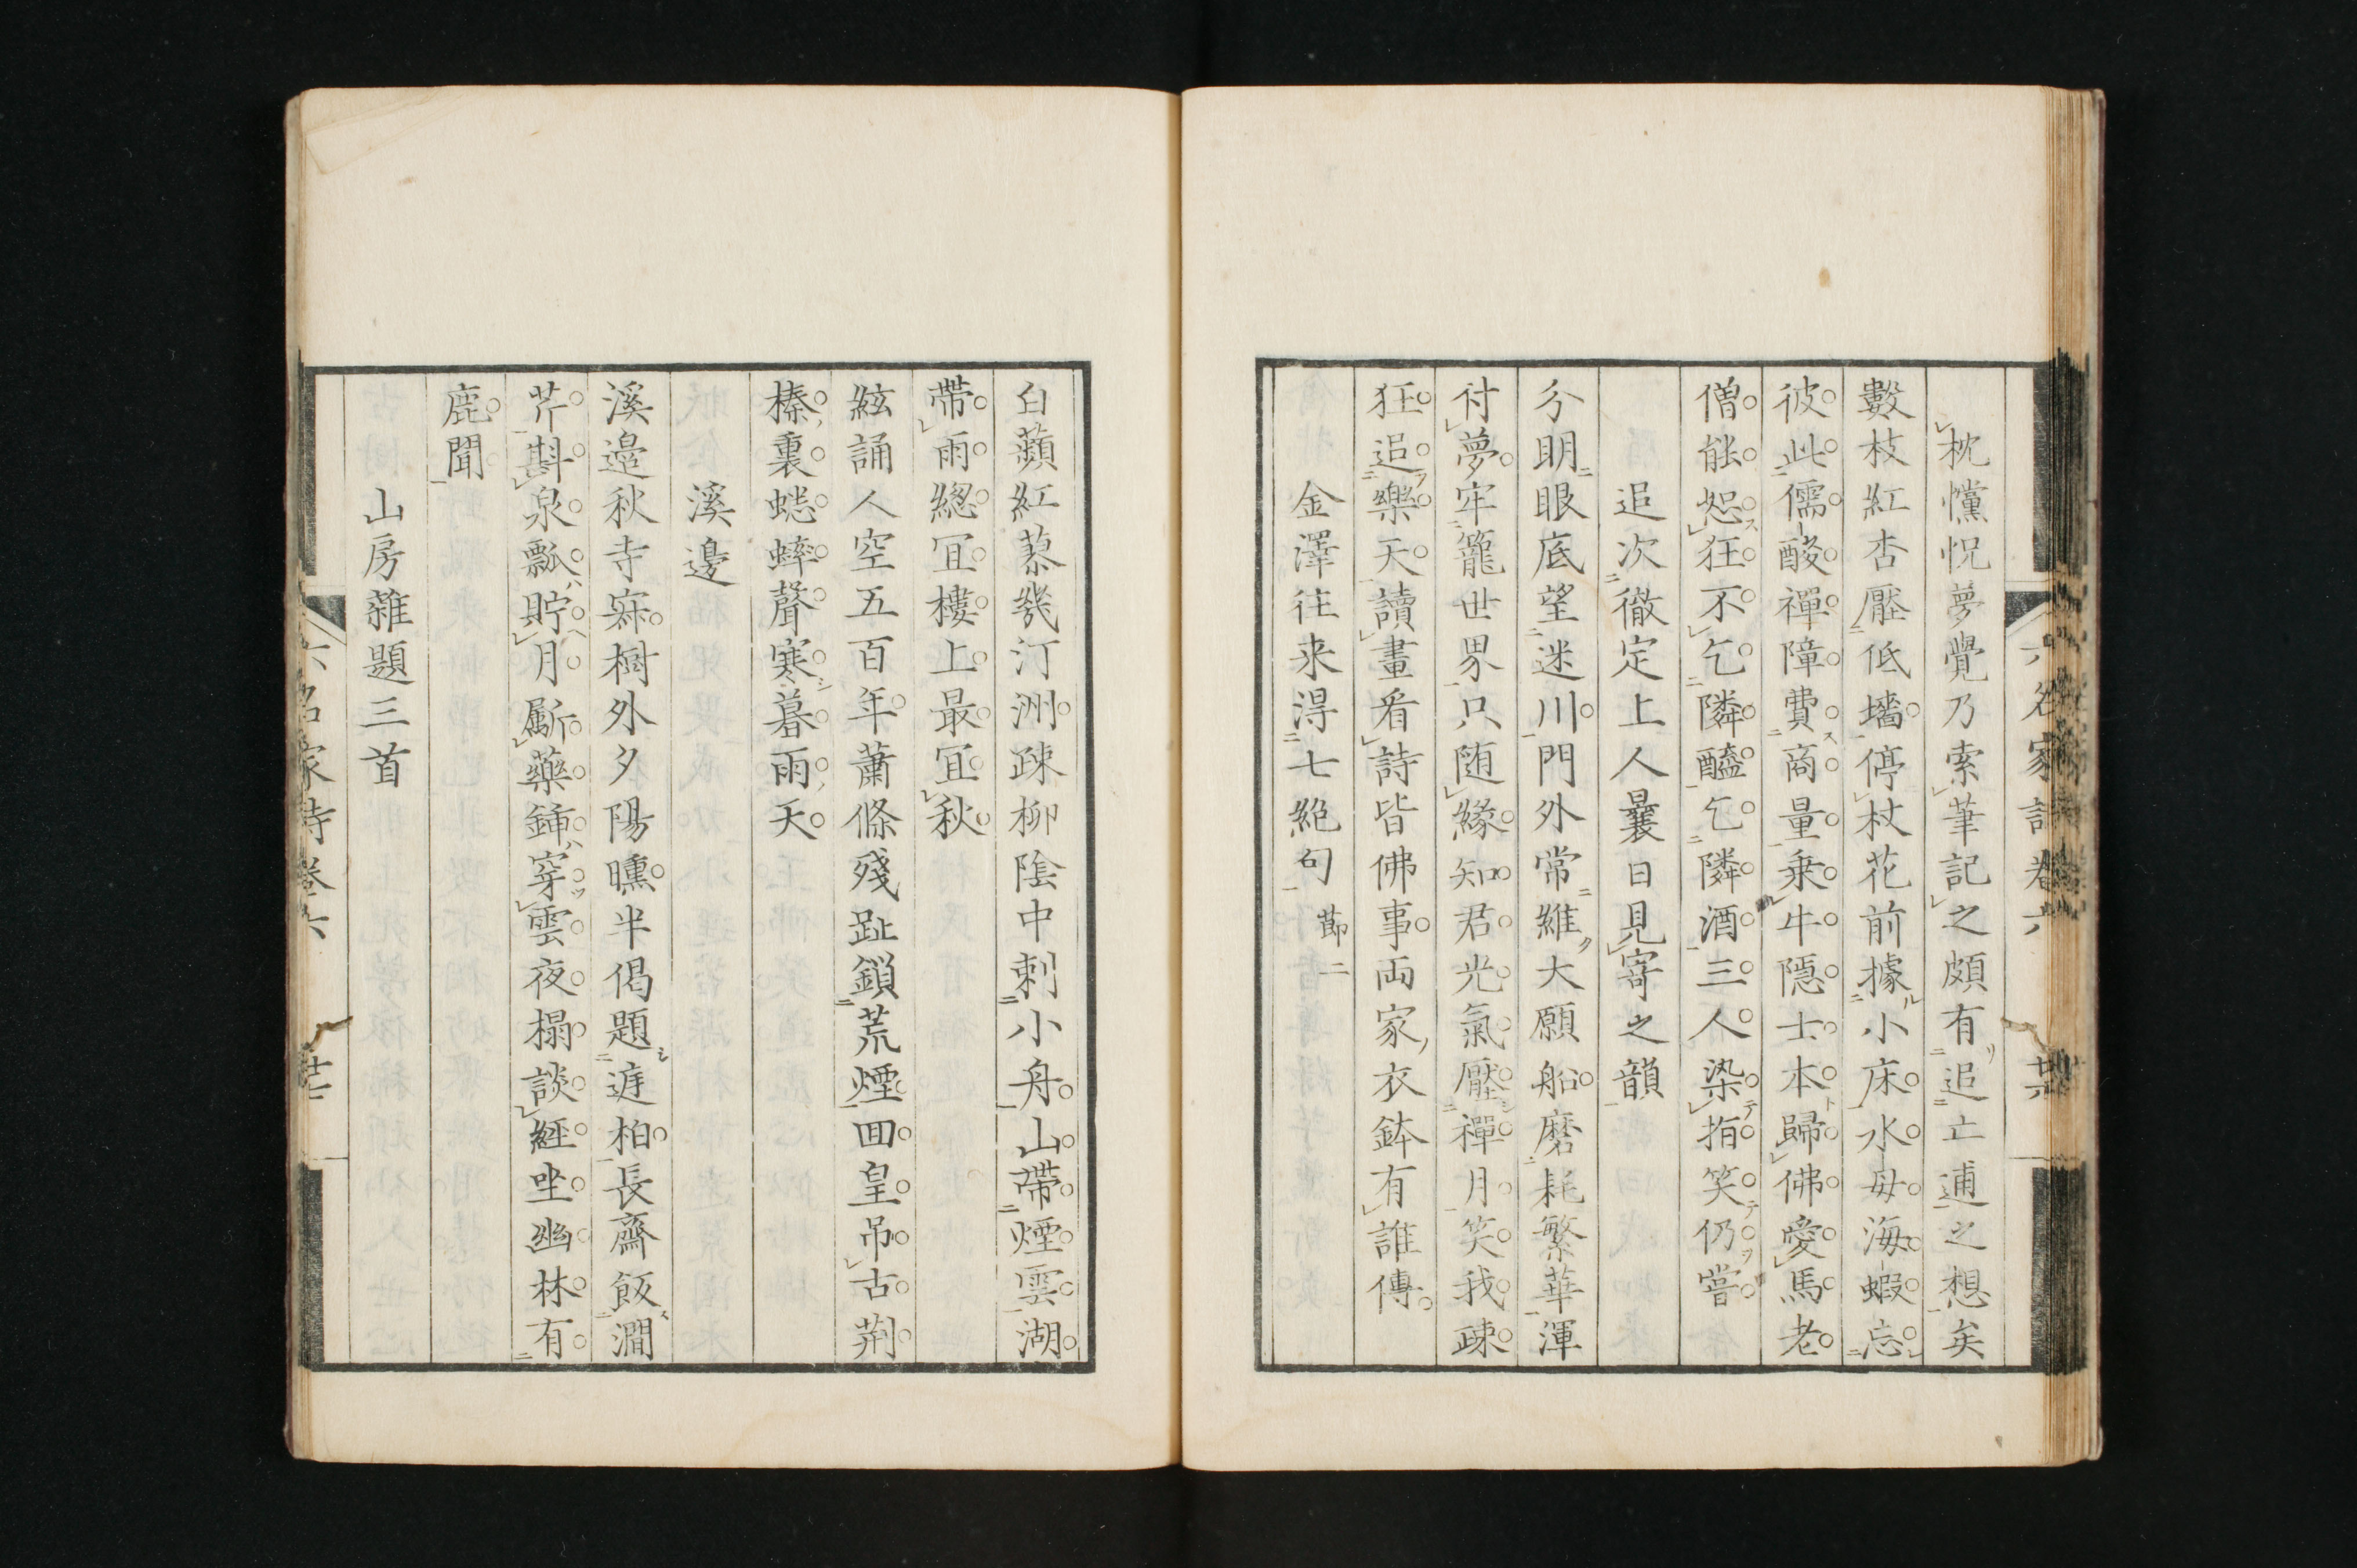 枕儻怳夢覺乃索筆記之頗有追亡逋之想矣
數枝紅杏壓低墻停杖花前據小床水母海蝦忘
彼此儒酸禪障費商量乗牛隱士本歸佛愛馬老
僧能恕狂不乞隣醯乞隣酒三人染指笑仍嘗
追次徹定上人曩日見寄之韻
分明眼底望迷川門外常維大願船磨耗繁華渾
付夢牢籠世界只随緣知君光氣壓禪月笑我疎
狂追樂天讀畫看詩皆佛事両家衣鉢有誰傳
金澤往来得七絶句 節二
白蘋紅蓼幾汀洲疎柳陰中刺小舟山帶煙雲湖
帶雨總宜樓上最宜秋
絃誦人空五百年蕭條殘趾鎖荒煙回皇吊古荊
榛裏蟋蟀聲寒暮雨天
溪邊
溪邉秋寺寂樹外夕陽曛半偈題遅柏長齋飯澗
芹斟泉瓢貯月斸藥鍤穿雲夜榻談經坐幽林有
鹿聞
山房雜題三首
六名家詩卷六